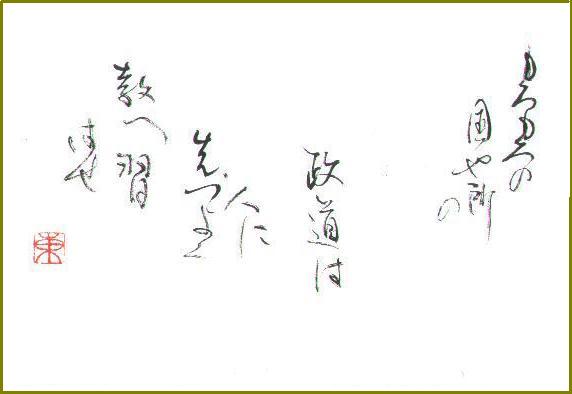 もろもろの
国や所の
政道は
人に
先づよく
教へ習
はせ
東